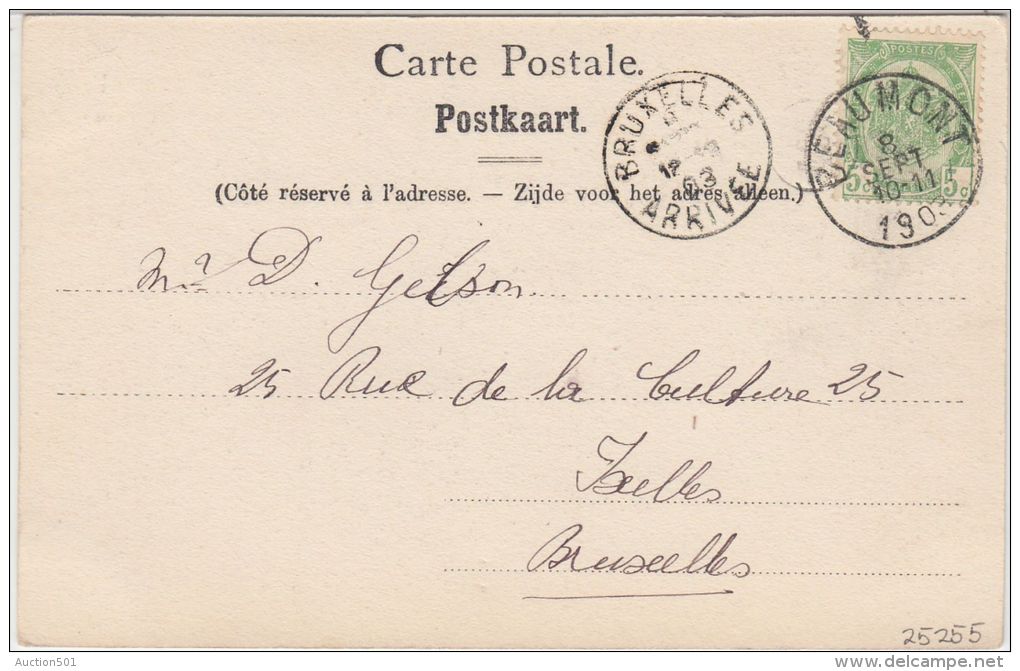 Carte Postale.
Postkaart.
(Côté réservé à l'adresse. — Zijde voor het adres alleen.)
POSTES
5c 5c
BEAUMONT
8
SEPT
10-11
1903
BRUXELLES
12
03
ARRIVÉE
Mr D. Gelson
25 Rue de la Culture 25
Ixelles
Bruxelles
25255
Auction501
delcampe.net